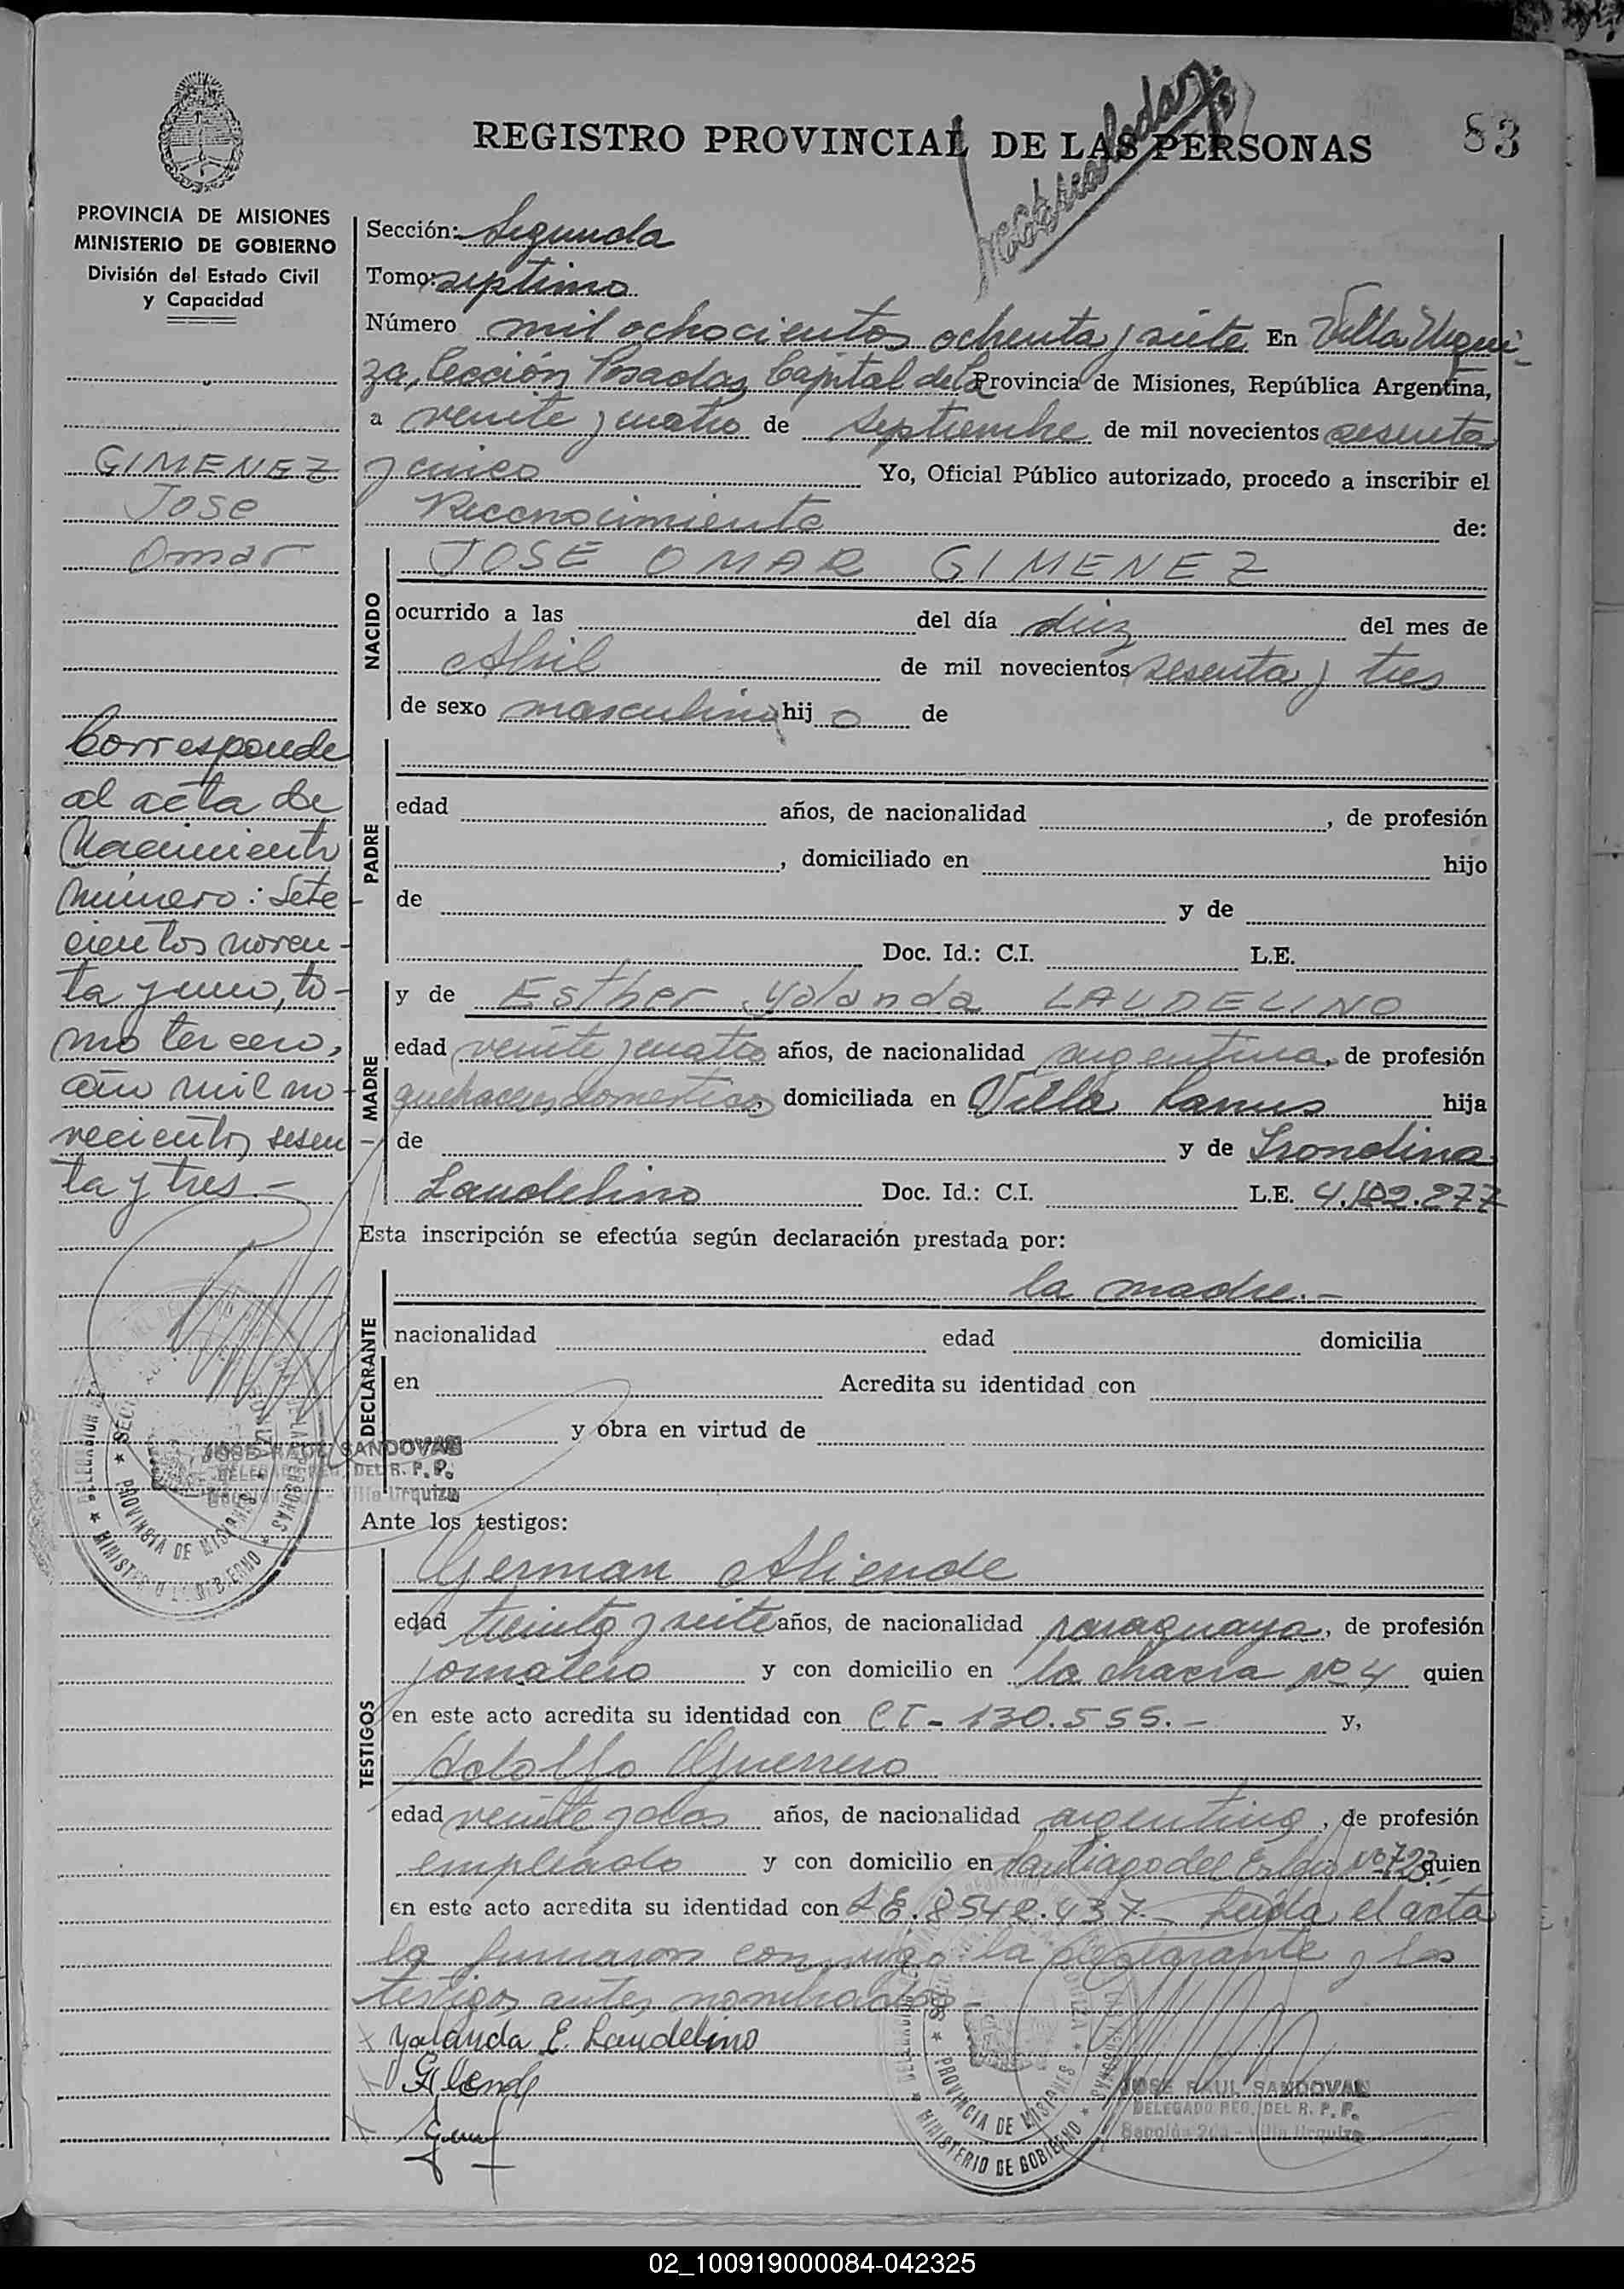 REGISTRO PROVINCIAL DE LAS PERSONAS
83
PROVINCIA DE MISIONES
MINISTERIO DE GOBIERNO
División del Estado Civil
y Capacidad
GIMENEZ
Jose
Omar
Corresponde
al acta de
Nacimiento
número: Sete-
cientos noven-
ta y uno, to-
mo tercero,
año mil no-
vecientos sesen-
ta y tres.-
JOSE RAUL SANDOVAL
DELEGADO REG. DEL R. P. P.
Sección 2da - Villa Urquiza
Sección: Segunda
Tomo: septimo
Número mil ochocientos ochenta y siete En Villa Urqui-
za, Sección Posadas Capital de la Provincia de Misiones, República Argentina,
a veinte y cuatro de Septiembre de mil novecientos sesenta
y cinco Yo, Oficial Público autorizado, procedo a inscribir el
Reconocimiento de:
NACIDO
JOSE OMAR GIMENEZ
ocurrido a las del día diez del mes de
Abril de mil novecientos sesenta y tres
de sexo masculino hij o de
PADRE
edad años, de nacionalidad , de profesión
, domiciliado en hijo
de y de
Doc. Id.: C.I. L.E.
MADRE
y de Esther Yolanda LAUDELINO
edad veinte y cuatro años, de nacionalidad argentina, de profesión
quehaceres domesticos, domiciliada en Villa Lanus hija
de y de
Laudelino Doc. Id.: C.I. L.E. 4.182.277
Esta inscripción se efectúa según declaración prestada por:
DECLARANTE
la madre.-
nacionalidad edad domicilia
en Acredita su identidad con
y obra en virtud de
Ante los testigos:
TESTIGOS
German Aliende
edad treinta y siete años, de nacionalidad paraguaya, de profesión
jornalero y con domicilio en la chacra Nº 4 quien
en este acto acredita su identidad con CI - 130.555.- y,
Adolfo Guerrero
edad veinte y dos años, de nacionalidad argentino, de profesión
empleado y con domicilio en Santiago del Estero Nº 723 quien
en este acto acredita su identidad con LE. 8.548.437.- Leida el acta
la firmaron conmigo la declarante y los
testigos antes nombrados.-
Yolanda E. Laudelino
PROVINCIA DE MISIONES
MINISTERIO DE GOBIERNO
JOSE RAUL SANDOVAL
DELEGADO REG. DEL R. P. P.
Sección 2da - Villa Urquiza
02_100919000084-042325